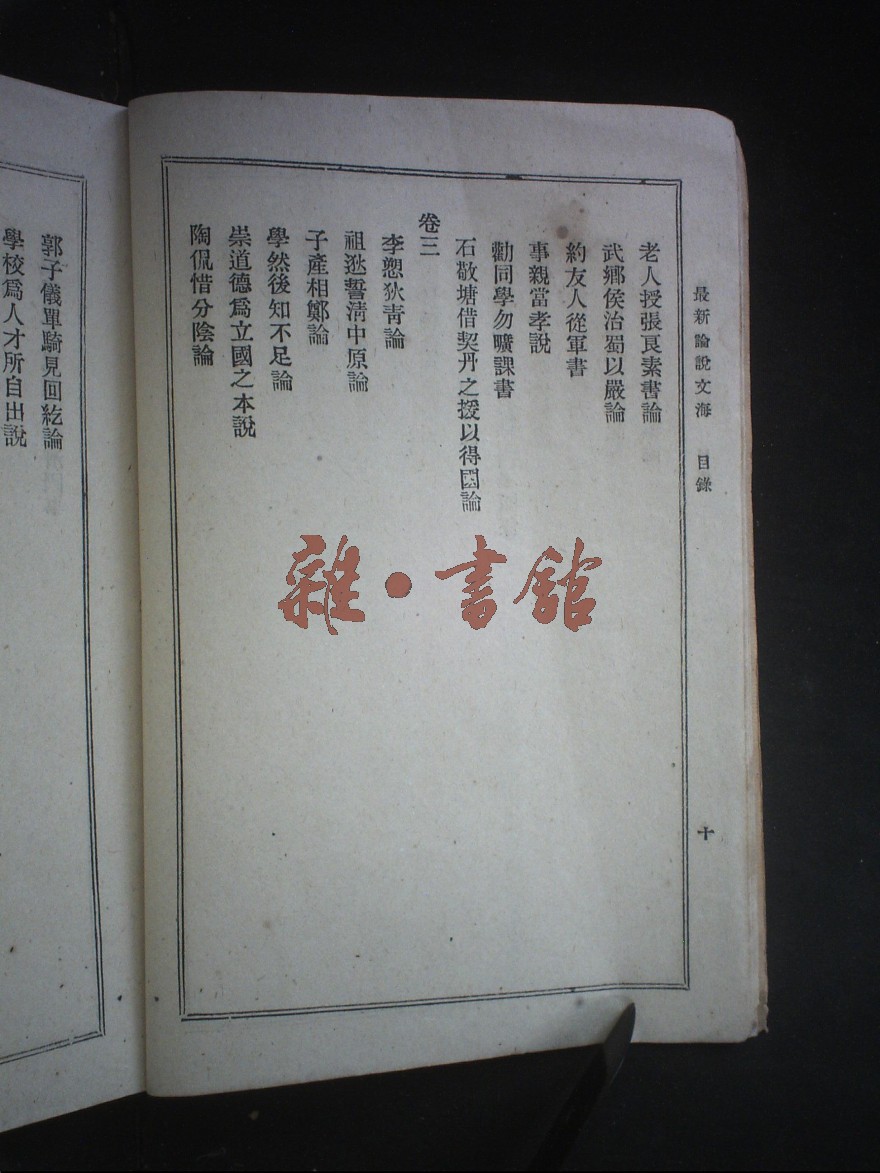 最新論說文海 目錄 十
老人授張良素書論
武鄉侯治蜀以嚴論
約友人從軍書
事親當孝說
勸同學勿曠課書
石敬塘借契丹之援以得國論
卷三
李愬狄靑論
祖逖誓淸中原論
子產相鄭論
學然後知不足論
崇道德爲立國之本說
陶侃惜分陰論
郭子儀單騎見回紇論
學校爲人才所自出說
雜·書館